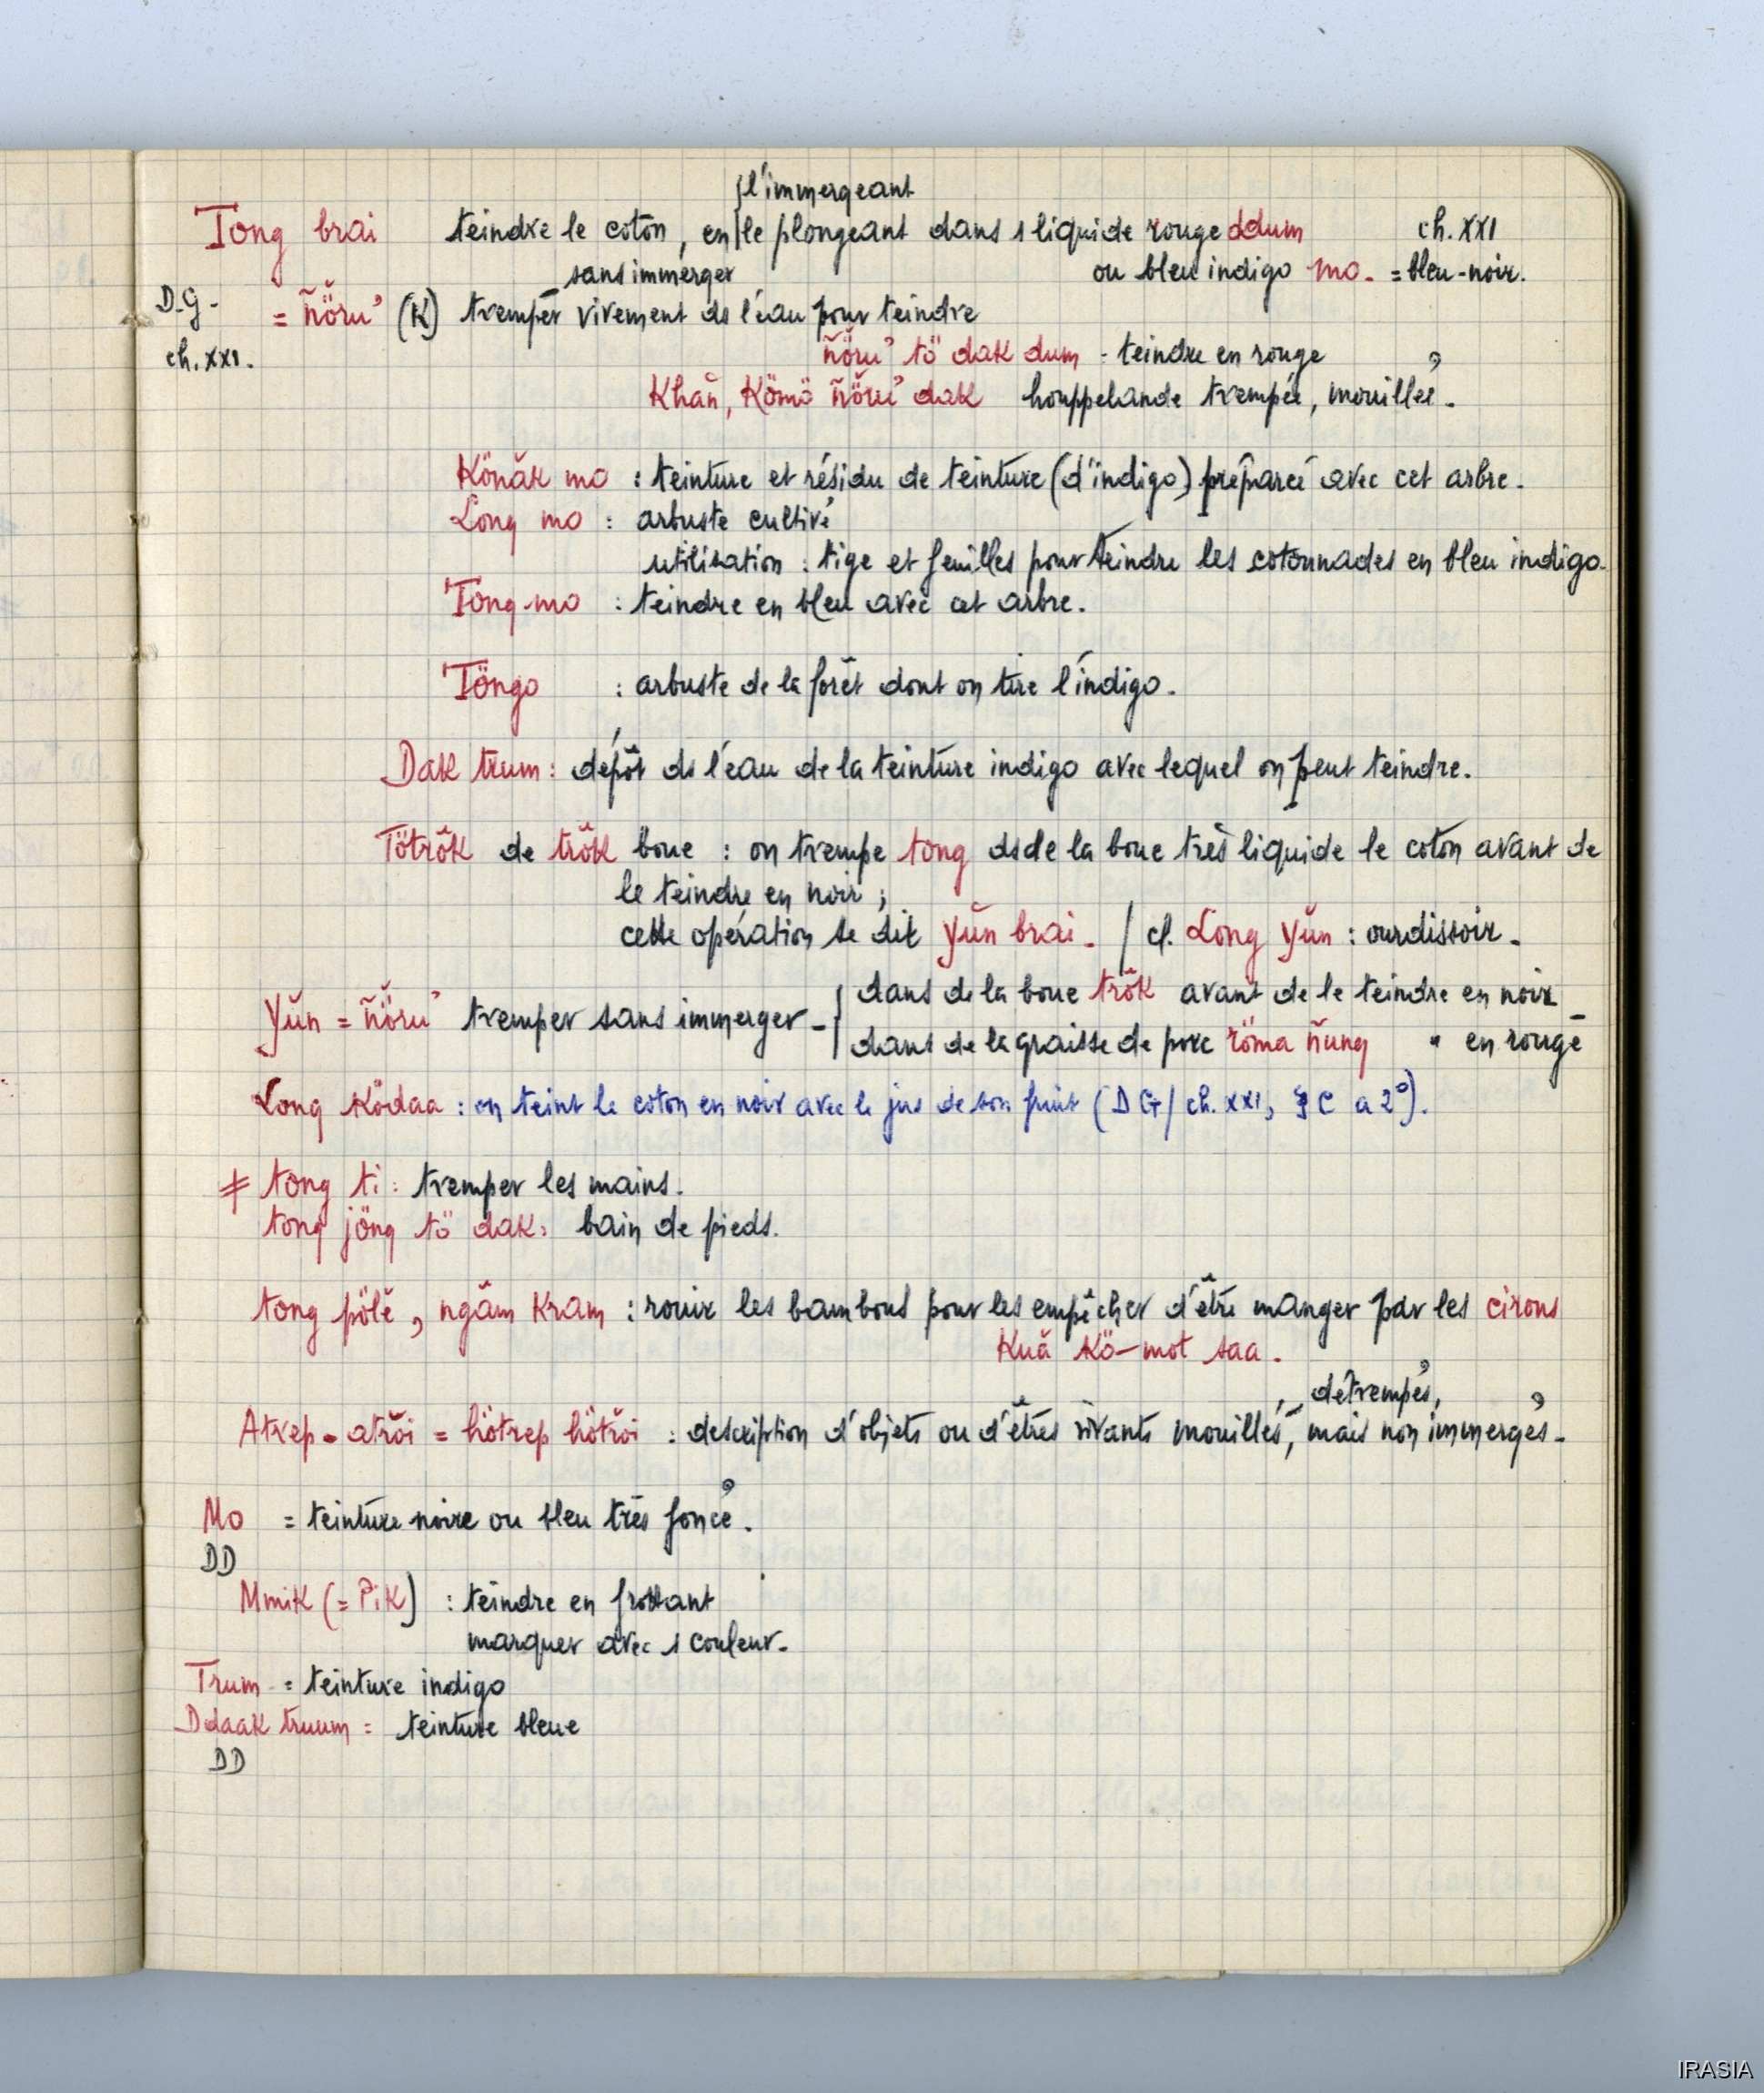 l'immergeant
Tong brai teindre le coton, en le plongeant dans 1 liquide rouge ddum ch. XXI
sans immerger ou bleu indigo mo. = bleu-noir.
D.G. = ñŏ̈ru' (K) tremper vivement ds l'eau pour teindre
ch. XXI. ñŏ̈ru' tö dak dum = teindre en rouge
Khañ, Kömö ñŏ̈ru' dak houppelande trempée, mouillée.
Könăk mo : teinture et résidu de teinture (d'indigo) préparée avec cet arbre.
Long mo : arbuste cultivé
utilisation : tige et feuilles pour teindre les cotonnades en bleu indigo.
Tong-mo : teindre en bleu avec cet arbre.
Töngo : arbuste de la forêt dont on tire l'indigo.
Dak trum : dépôt ds l'eau de la teinture indigo avec lequel on peut teindre.
Tötrŏk de trŏk boue : on trempe tong ds de la boue très liquide le coton avant de
le teindre en noir ;
cette opération se dit yŭn brai. / cf. Long yŭn : ourdissoir.
Yŭn = ñŏ̈ru' tremper sans immerger - { dans de la boue trŏk avant de le teindre en noir
dans de la graisse de porc röma ñung " en rouge
Long Ködaa : on teint le coton en noir avec le jus de son fruit (DG/ ch. XXI, § C a 2°).
≠ tong ti : tremper les mains.
tong jöng tö dak : bain de pieds.
tong pölĕ, ngăm kram : rouir les bambous pour les empêcher d'être manger par les cirons
Kuă kö-mot saa.
détrempés,
Atrep-atrŏi = hötrep hötrŏi : description d'objets ou d'êtres vivants mouillés, mais non immergés.
Mo = teinture noire ou bleu très foncé.
DD
Mmik (= Pik) : teindre en frottant
marquer avec 1 couleur.
Trum = teinture indigo
Ddaak truum = teinture bleue
DD
IRASIA